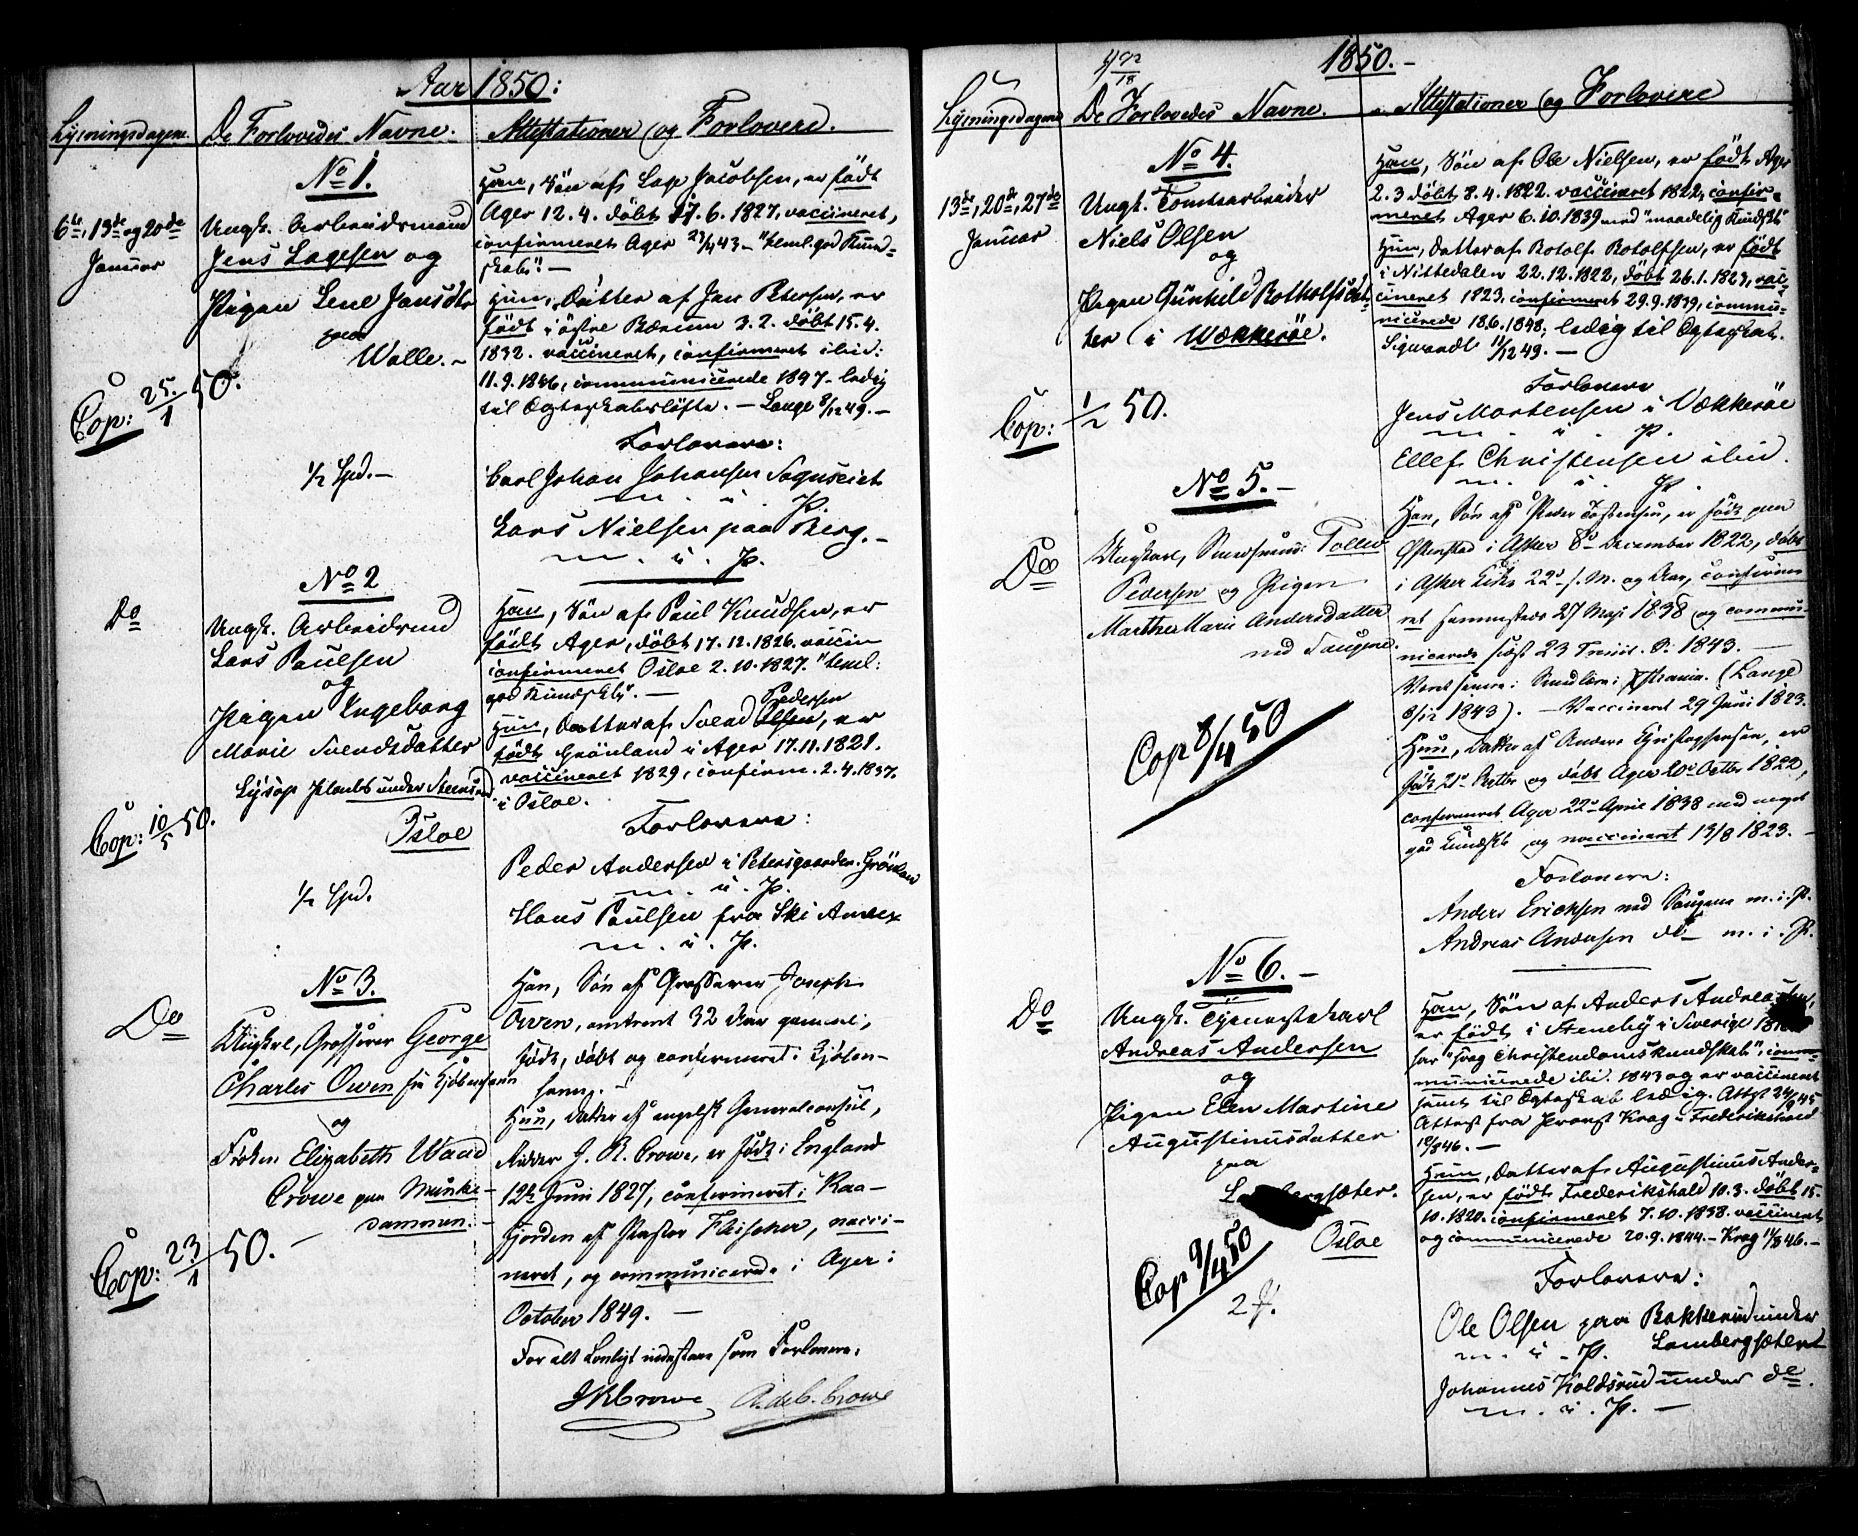 Aar 1850:
Lysningsdagene.
De Forlovedes Navne.
Attestationer og Forlovere.
No 1.
6te, 13de og 20de
Januar
Ungk. Arbeidsmand
Jens Lagesen og
Pigen Lene Jansdtr
paa
Wolle. -
Cop: 25/1 50.
1/2 Spd. -
Han, Søn af Lage Jacobsen, er født
Ager 12.4. døbt 17.6. 1827, vaccineret,
confirmeret Ager 23/4 43 - "teml. god Kund-
skab". -
Hun, Datter af Jan Petersen, er
født i østre Bærum 3.2. døbt 15.4.
1832. vaccineret, confirmeret ibid:
11.9. 1846, communicerede 1847 - ledig
til Ægteskabsløfte. - Lange 8/12 49. -
Forlovere:
Carl Johan Johansen
m. i. P.
Lars Nielsen paa Berg. -
m. i. P.
No 2
Do
Ungk. Arbeidsmd
Lars Paulsen
og
Pigen Ingeborg
Marie Svendsdatter
under
Osloe
Cop: 10/5 50.
1/2 Spd.
Han, Søn af Paul Knudsen, er
født Ager, døbt 17.12.1826. vaccin
confirmeret Osloe 2.10.1827. "teml:
god Kundskb". -
Pedersen
Hun, Datter af Svend Olsen, er
født Grønland i Ager 17.11.1821.
vaccineret 1829, confirm. 2.4.1837.
i Osloe.
Forlovere:
Peder Andersen i Petersgaarden. Grönland
m. i. P.
Hans Paulsen fra Ski Annex
m. i. P.
No 3.
Do
Ungkarl, Grosserer George
Charles Owen fra Kjøbenhavn
og
Frøken Elizabeth Wand
Crowe paa Munke-
dammen. -
Cop: 23/1 50. -
Han, Søn af Grosserer Joseph
Owen, omtrent 32 Aar gammel,
født, døbt og confirmeret i Kjøben-
havn. -
Hun, Datter af engelsk Generalconsul,
Ridder J. R. Crowe, er født i England
12te Juni 1827, confirmeret i Kaa-
fjorden af Pastor Fleischer, vacci-
neret, og communicerede i Ager i
October 1849. -
For alt Lovligt indestaae som Forlovere,
JRCrowe
1850. -
Lysningsdagene
De Forlovedes Navne.
Attestationer og Forlovere
No 4.
13de, 20de, 27de
Januar
Ungk. Tomtearbeider
Niels Olsen
og
Pigen Gunhild Botholfsdat-
ter i Wækkerøe.
Cop: 1/2 50.
Han, Søn af Ole Nielsen, er født Ager
2.3 døbt 8.4. 1822. vaccineret 1822, confir-
meret Ager 6.10.1839 med "maadelig Kundskb"
Hun, Datter af Botolf Botolfsen, er født
i Nittedalen 22.12.1822, døbt 26.1.1823, vac-
cineret 1823, confirmeret 29.9.1839, commu-
nicerede 18.6.1848, ledig til Ægteskab.
Sigwardt 11/12 49. -
Forlovere
Jens Mortensen i Vækkerøe
m. i. P.
Ellef Christensen ibid.
m. i. P.
No 5. -
Do
Ungkarl, Tollev
Pedersen og Pigen
Marthe Marie Andersdatter
ved Saugene.
Cop 8/4 50
Han, Søn af Peder Tostensen, er født paa
i Asker 8de December 1822, døbt
i Asker Kirke 22de s. M. og Aar, confirme-
ret sammesteds 27 Maj 1838 og commu-
nicerede sidst 23 Trinit. S. 1843. -
(Lange
8/12 1843). - Vaccineret 29 Juni 1823.
Hun, Datter af Anders Christophersen, er
født 21de og døbt Ager 20de Octbr 1822,
confirmeret Ager 22de April 1838 med meget
god Kundskb og vaccineret 13/8 1823. -
Forlovere:
Anders Erichsen ved Saugene m. i. P.
Andreas Andersen do m. i. P.
No 6. -
Do
Ungk. Tjenestekarl
Andreas Andersen
og
Pigen Elen Martine
Augustinusdatter
paa
Osloe
Cop 9/4 50
Han, Søn af Anders Andreasen,
er født i Steneby i Sverige
har "svag Christendomskundskab", com-
municerede ibi. 1843 og er vaccineret
samt til Ægteskab ledig. Attst 24/9 45
Attest fra Provst Krag i Frederikshald
Hun, Datter af Augustinus Ander-
sen, er født Frederikshald 10.3. døbt 15.
10.1820. confirmeret 7.10.1838. vaccineret
og communicerede 20.9.1844. - Krag 11/8 46. -
Forlovere:
Ole Olsen paa Bakkerud under
m. i. P. Lambergsæteret
Johannes Holdsrud under do.
m. i. P. -